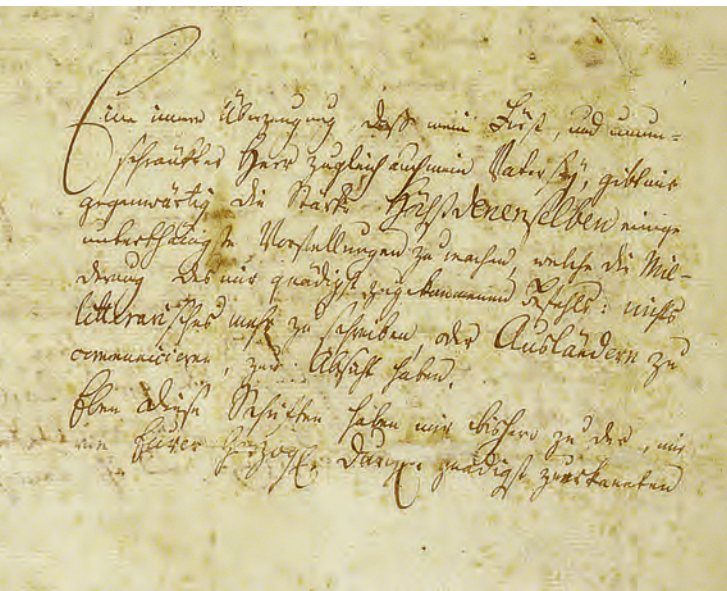 Eine innre Überzeugung dass mein Fürst, und unum-
schränkter Herr zugleich auch mein Vater sey, gibt mir
gegenwärtig die Stärke Höchstdenenselben einige
unterthänigste Vorstellungen zu machen, welche die Mil-
derung des mir gnädigst zugekommenen Befehls: nichts
litterarisches mehr zu schreiben, oder Ausländern zu
communicieren, zur Absicht haben.
Eben diese Schriften haben mir bishero zu der, mir
von Eurer Herzogl. Durchl. gnädigst zuerkannten